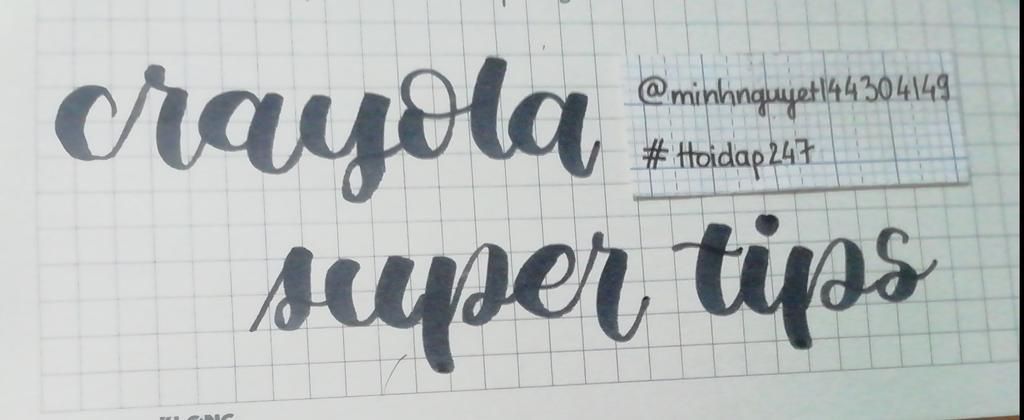 crayola
@minhnguyet144304149
# Hoidap247
super tips